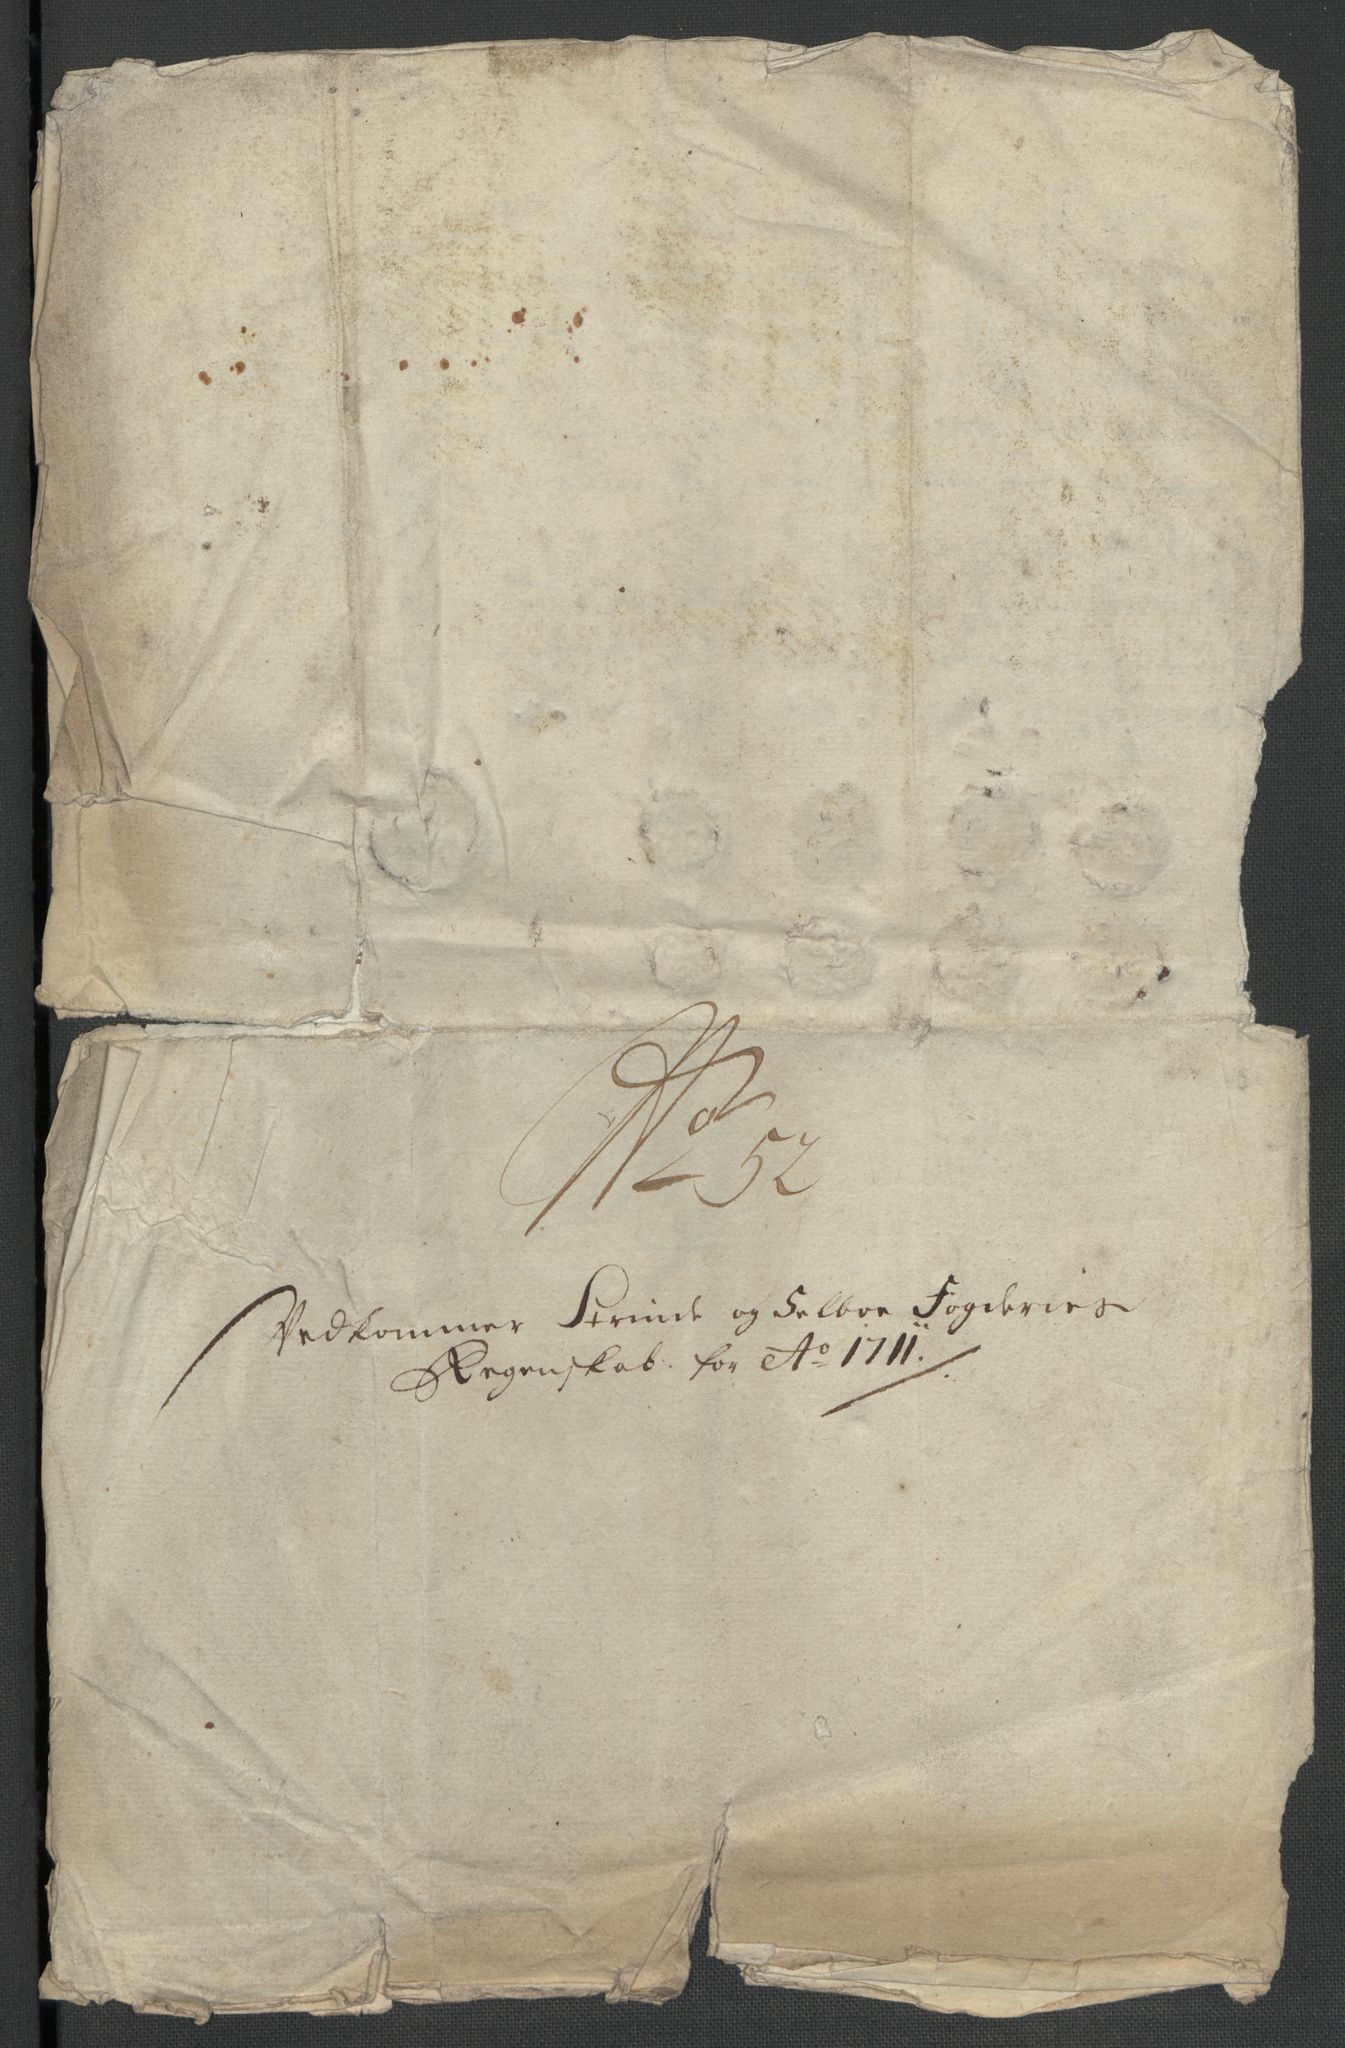 No 52
Vedkommer Strinde og Selboe Fogderies
Regenskab. for Ao 1711.